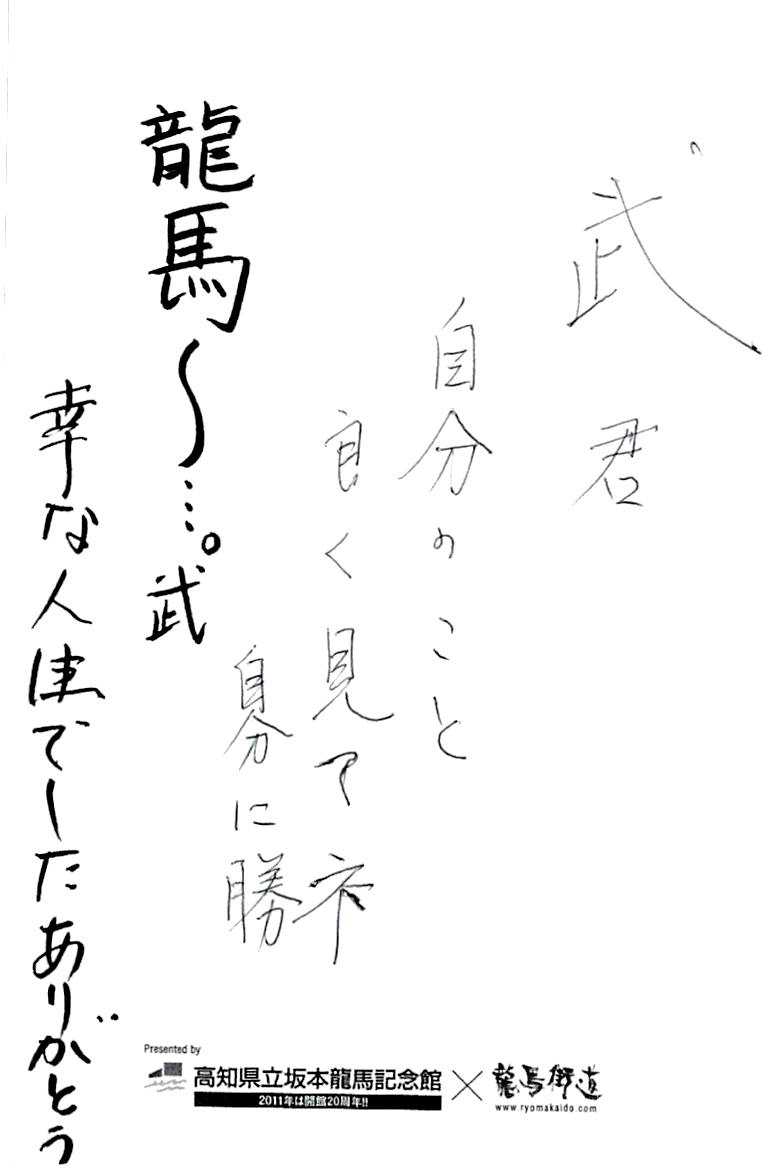 武君
自分のこと
良く見て
自分に勝
龍馬〜…。武
幸な人生でしたありがとう
Presented by
高知県立坂本龍馬記念館×龍馬街道
2011年は開館20周年!!
www.ryomakaido.com